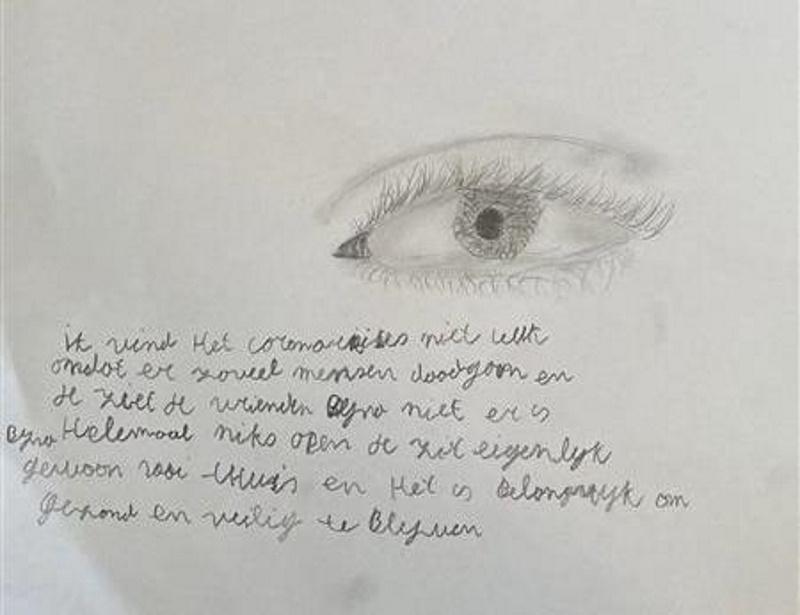 ik vind Het coronavirus niet leuk
omdat er zoveel mensen doodgaan en
Je ziet Je vrienden Byna niet er is
Byna Helemaal niks open Je zit eigenlyk
gewoon saai thuis en Het is Belangryk om
Gezond en veilig te Blyven